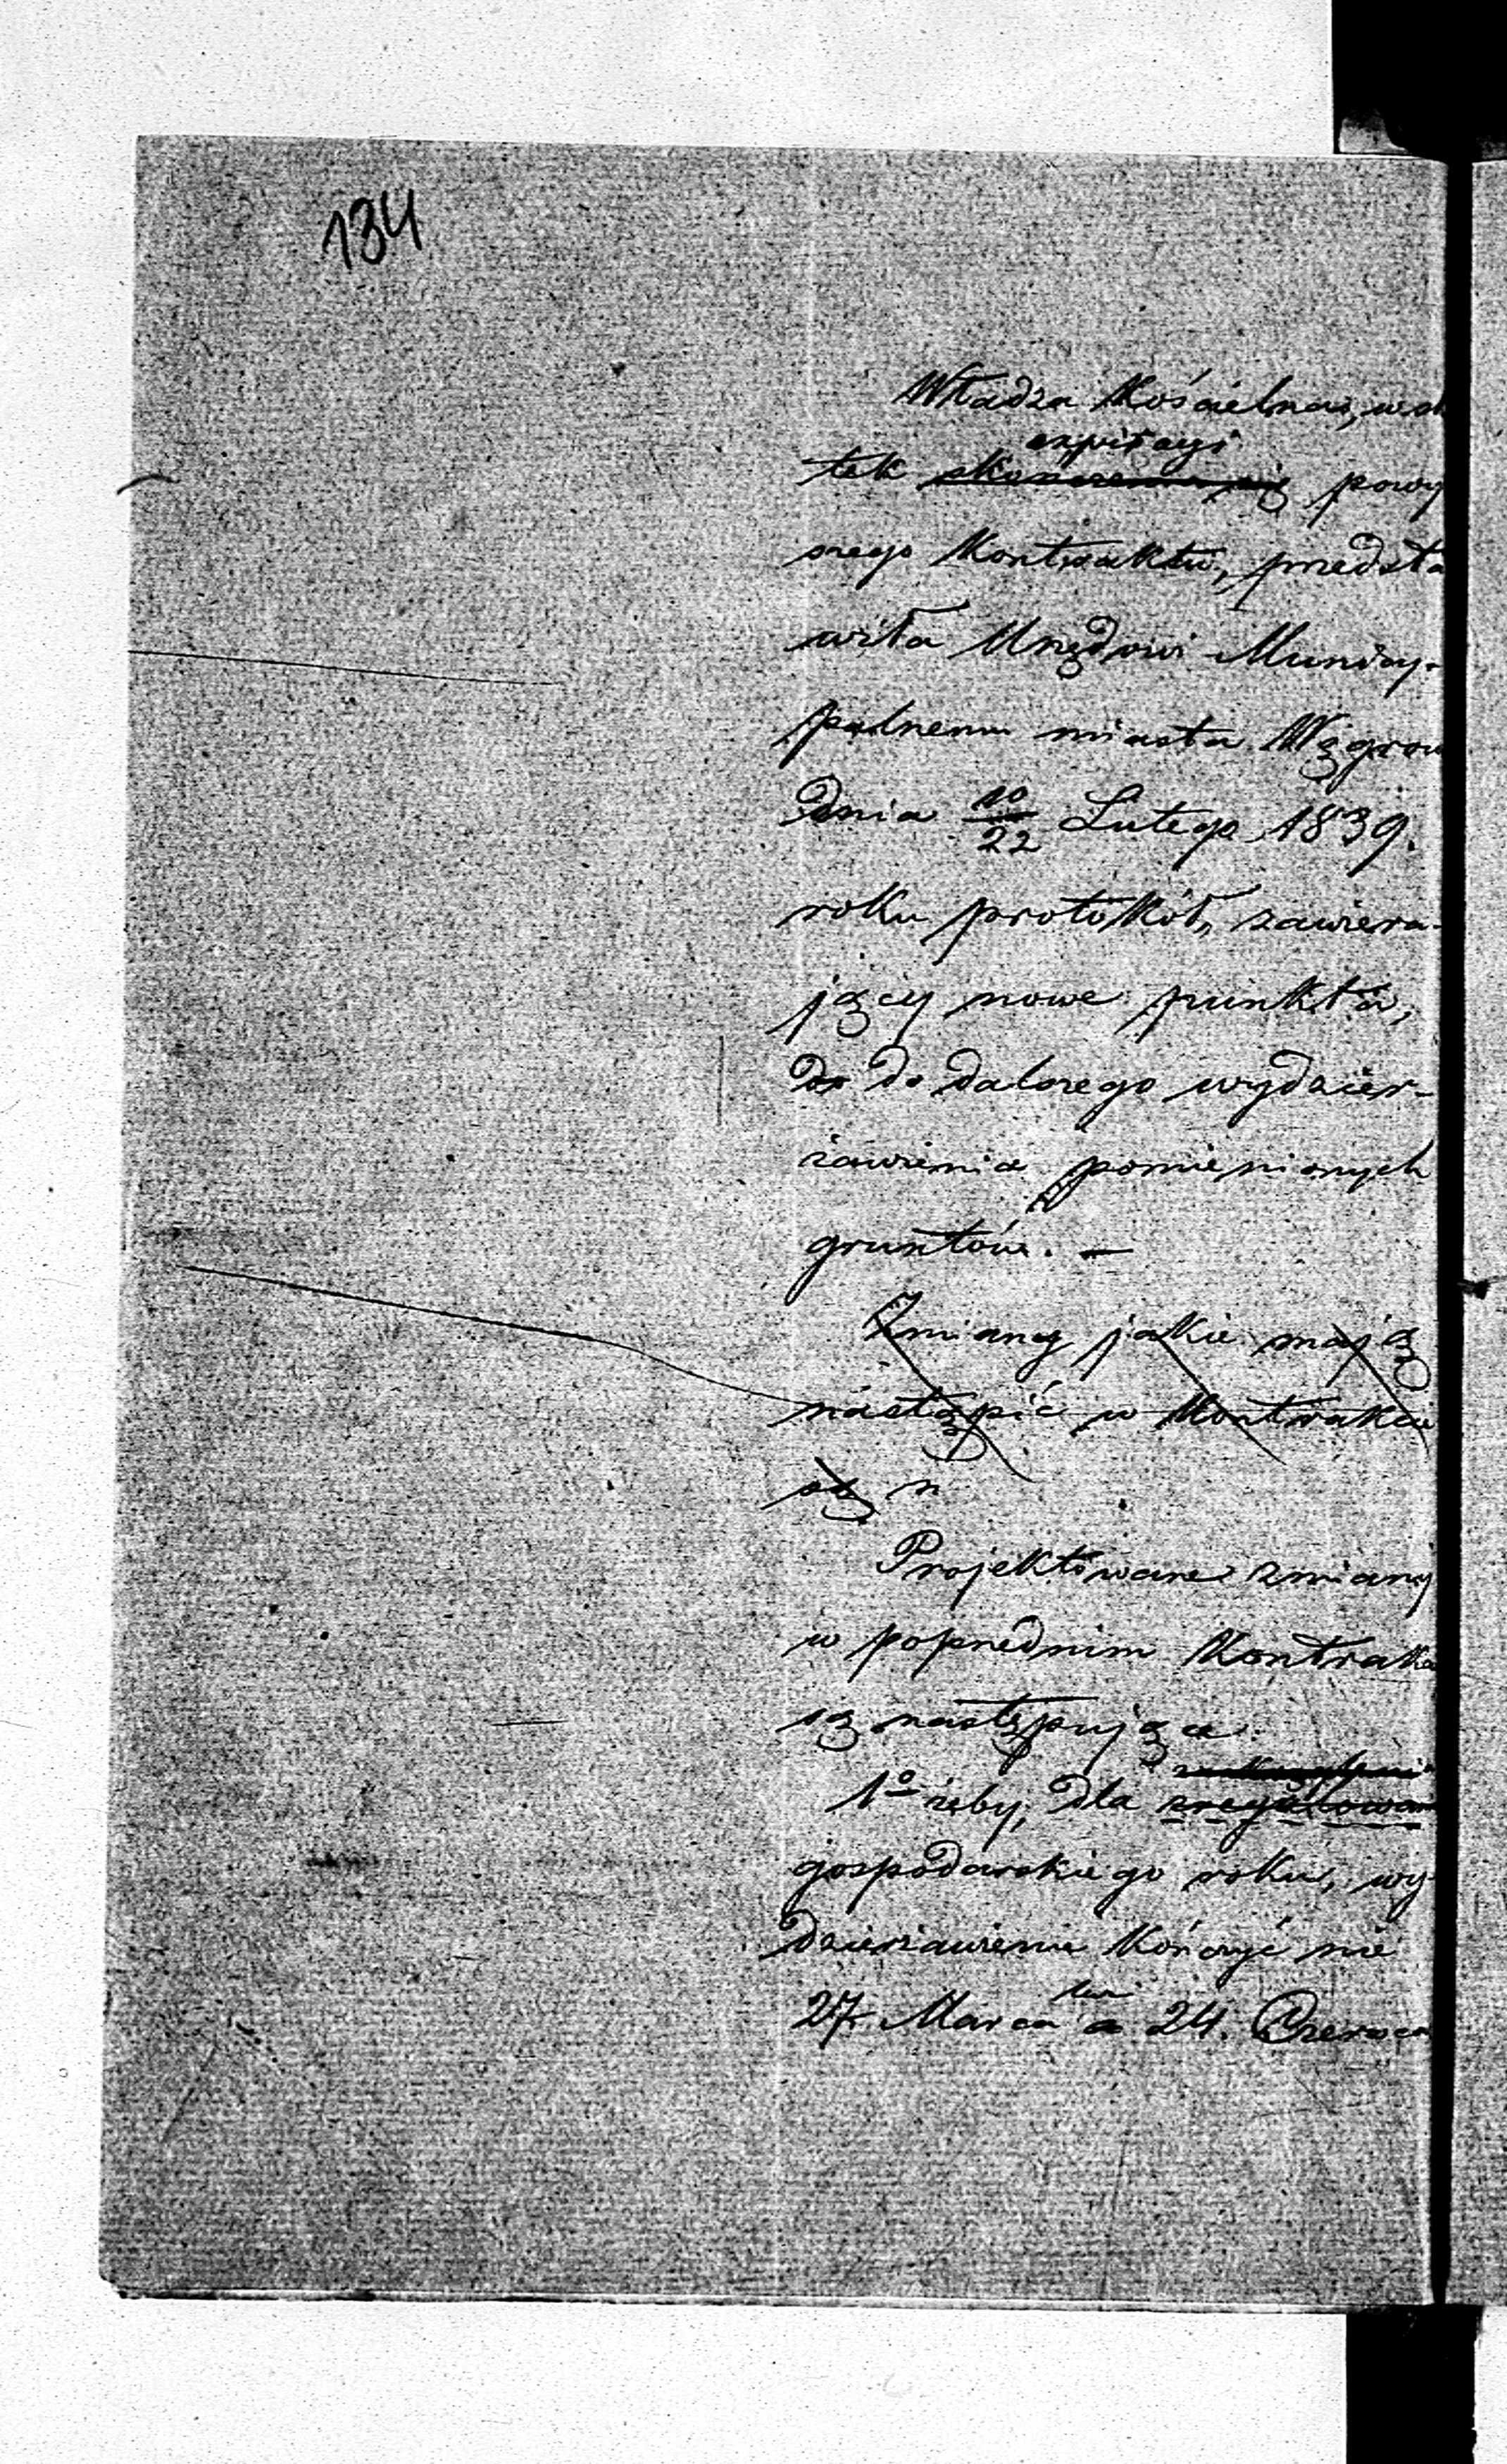 134
Władza Kościelna, w sk
expiracyi
tek skończenia się powy
szego Kontraktu, przedsta
wiła Urzędowi Municy-
palnemu miasta Węgrow
Dnia 10/22 Lutego 1839.
roku protokół, zawiera-
jący nowe punkta,
do do dalszego wydzier-
żawienia pomienionych
gruntów. —
Zmiany jakie mają
nastąpić w Kontrakcie
są n
Projektowane zmiany
w poprzednim Kontrak
są następujące:
1o żeby, dla uregulowan
gospodarskiego roku, wy
dzierżawienie kończyć nie
27 Marca lecz a 24. Czerwca